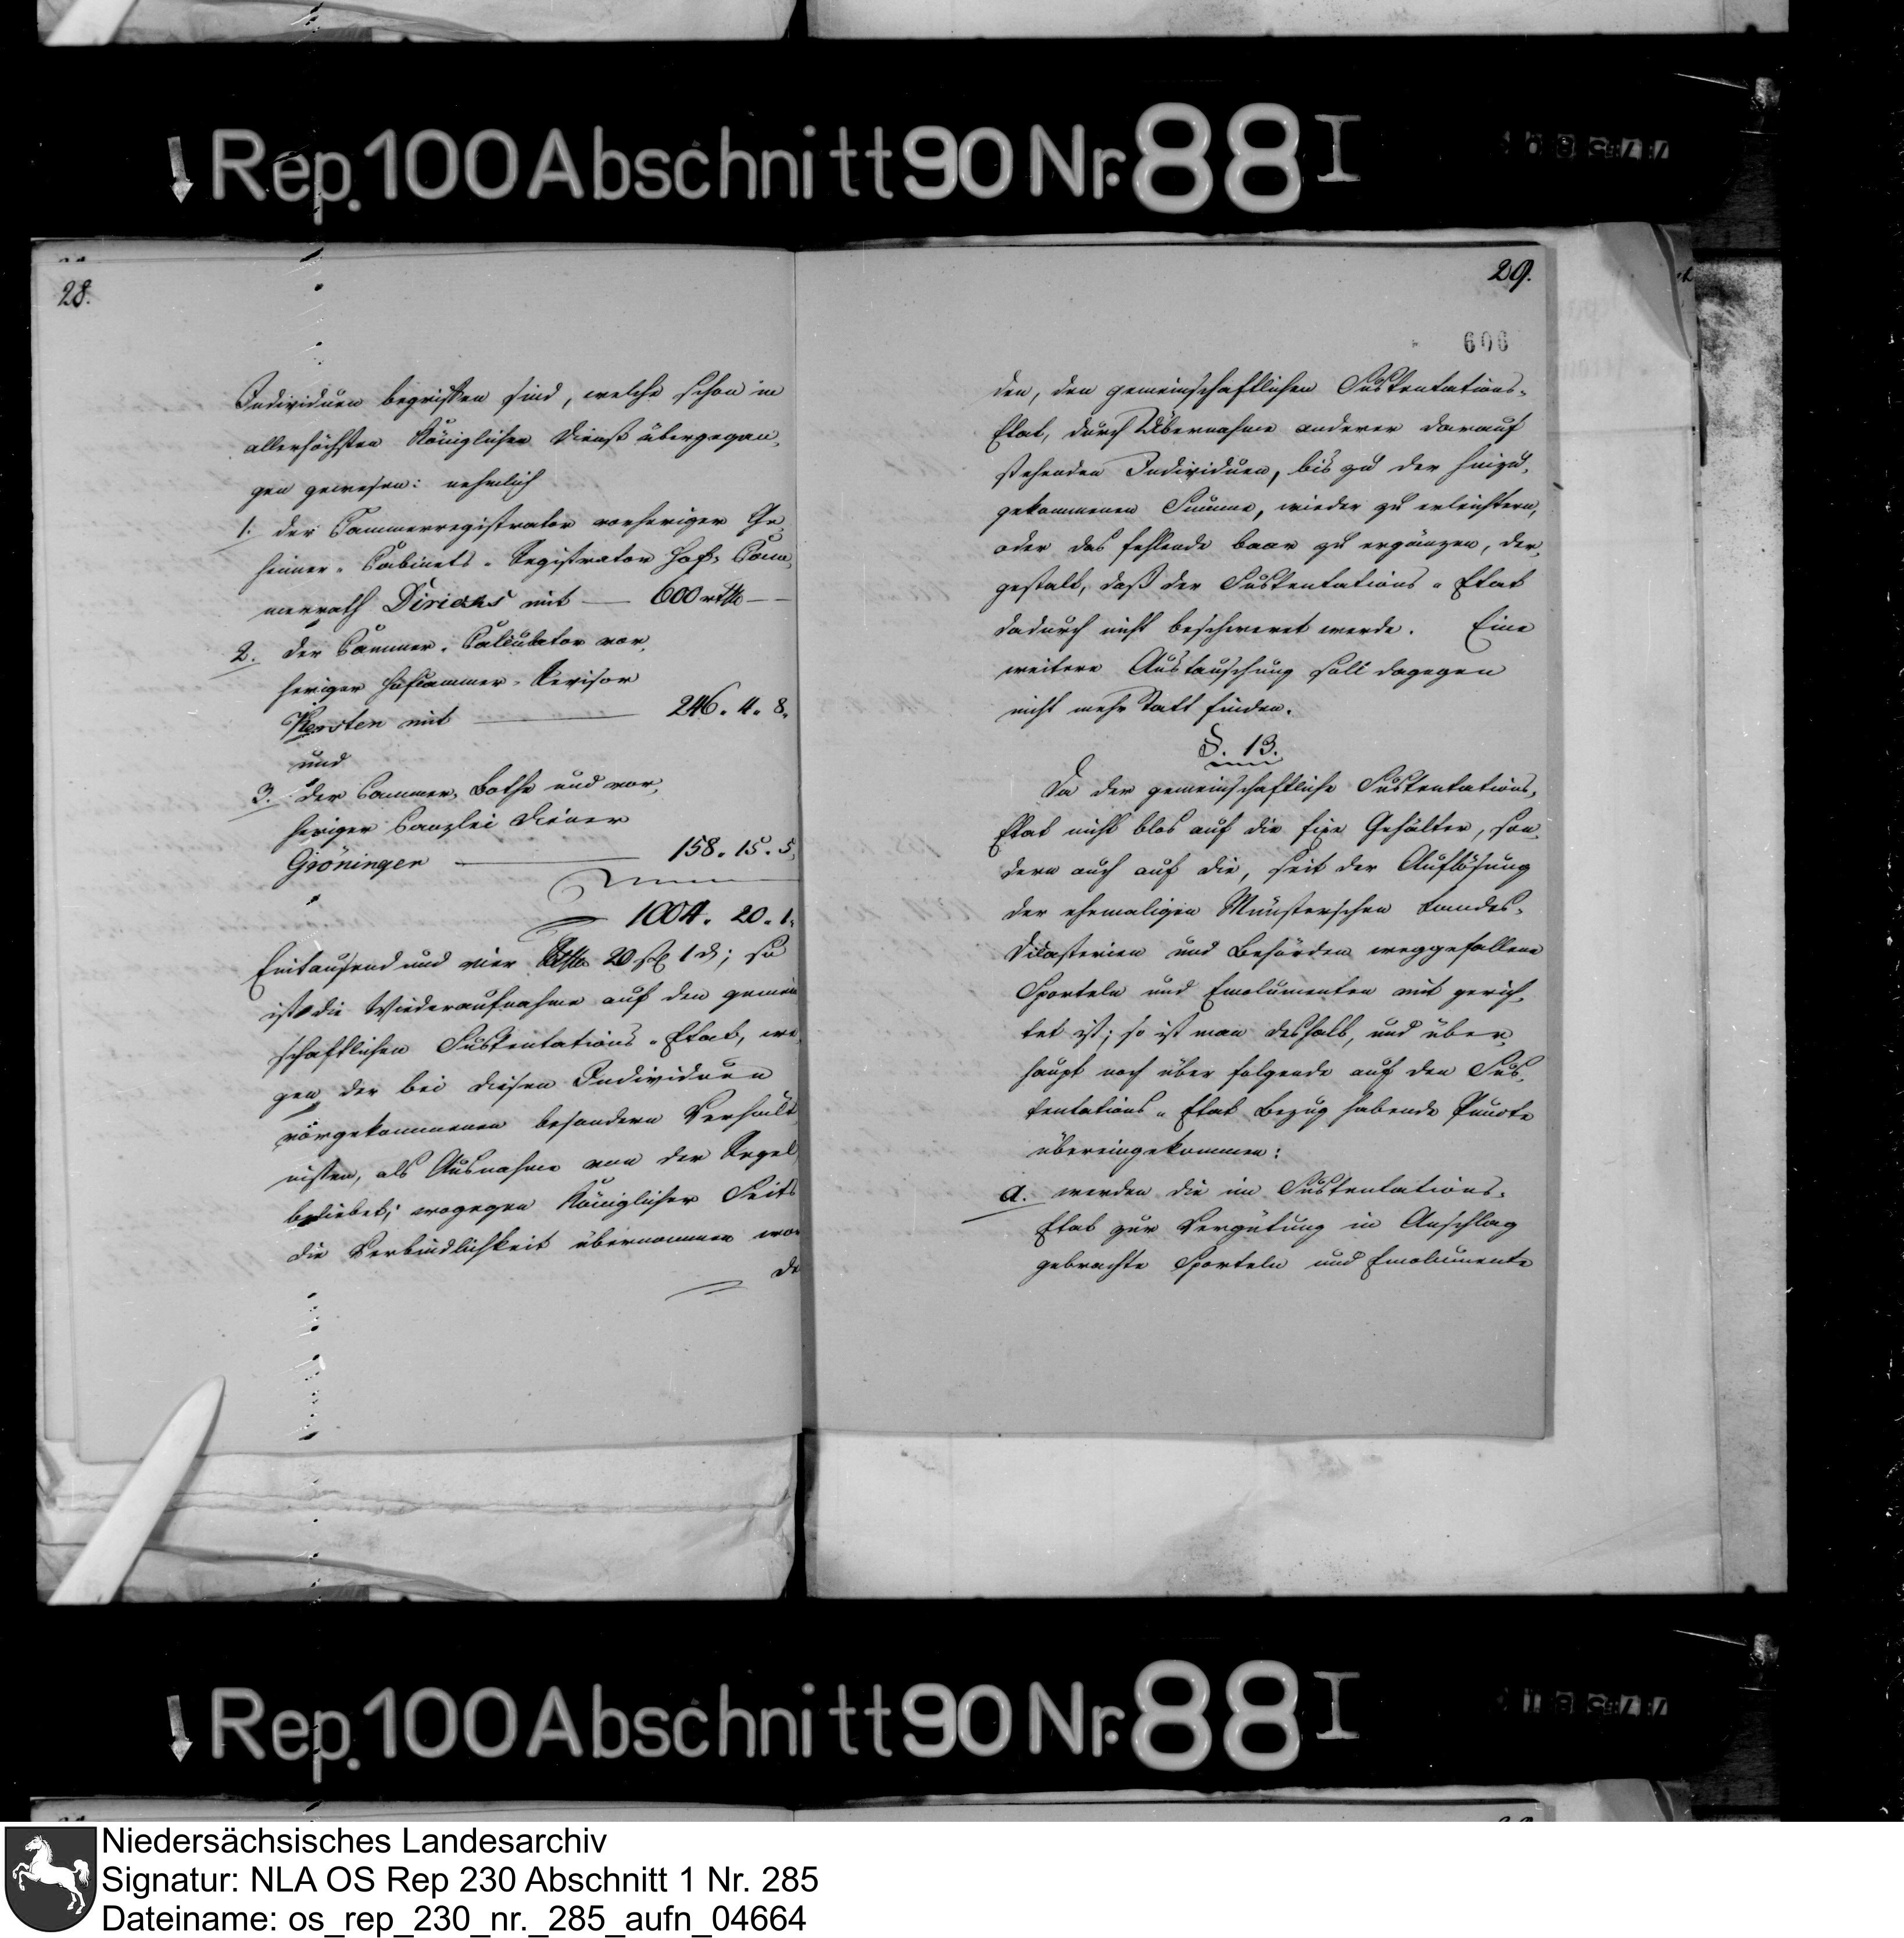 Rep. 100 Abschnitt 90 Nr. 88 I
28.
Individuen begriffen sind, welche schon in
allerhöchsten Königlichen Dienst übergegan„
gen gewesen: nehmlich
1. der Cammerregistrator vorheriger Ge„
heimer „ Cabinets „ Registrator Hof„ Cam„
merrath Diricks mit — 600 rthlr —
2. der Cammer „ Calculator vor„
heriger Hofkammer „ Revisor
Kersten mit — 246. 4. 8.
und
3. der Cammer„ Bothe und vor„
heriger Canzlei Diener
Gröninger — 158. 15. 5.
1004. 20. 1.
Eintausend und vier Rthlr 20 ßl 1 d; so
ist die Wiederaufnahme auf den gemein
schaftlichen Sustentations „ Etat, we„
gen der bei diesen Individuen
vorgekommenen besondern Verhält
nissen, als Ausnahme von der Regel
beliebet; wogegen Königlicher Seits
die Verbindlichkeit übernommen wor
de
29.
606
den, den gemeinschaftlichen Sustentations„
Etat, durch Übernahme anderer darauf
stehenden Individuen, bis zu der hinzu„
gekommenen Summe, wieder zu erleichtern,
oder das fehlende baar zu ergänzen, der„
gestalt, daß der Sustentations „ Etat
dadurch nicht beschweret werde. Eine
weitere Austauschung soll dagegen
nicht mehr Statt finden.
§. 13.
Da der gemeinschaftliche Sustentations„
Etat nicht blos auf die fixe Gehälter, son„
dern auch auf die, seit der Auflösung
der ehemaligen Münsterschen Landes„
Dicasterien und Behörden weggefallene
Sporteln und Emolumenten mit gerich„
tet ist; so ist man deshalb, und über„
haupt noch über folgende auf den Sus„
tentations „ Etat Bezug habende Puncte
übereingekommen:
a. werden die im Sustentations„
Etat zur Vergütung in Anschlag
gebrachte Sporteln und Emolumente
Rep. 100 Abschnitt 90 Nr. 88 I
Niedersächsisches Landesarchiv
Signatur: NLA OS Rep 230 Abschnitt 1 Nr. 285
Dateiname: os_rep_230_nr._285_aufn_04664